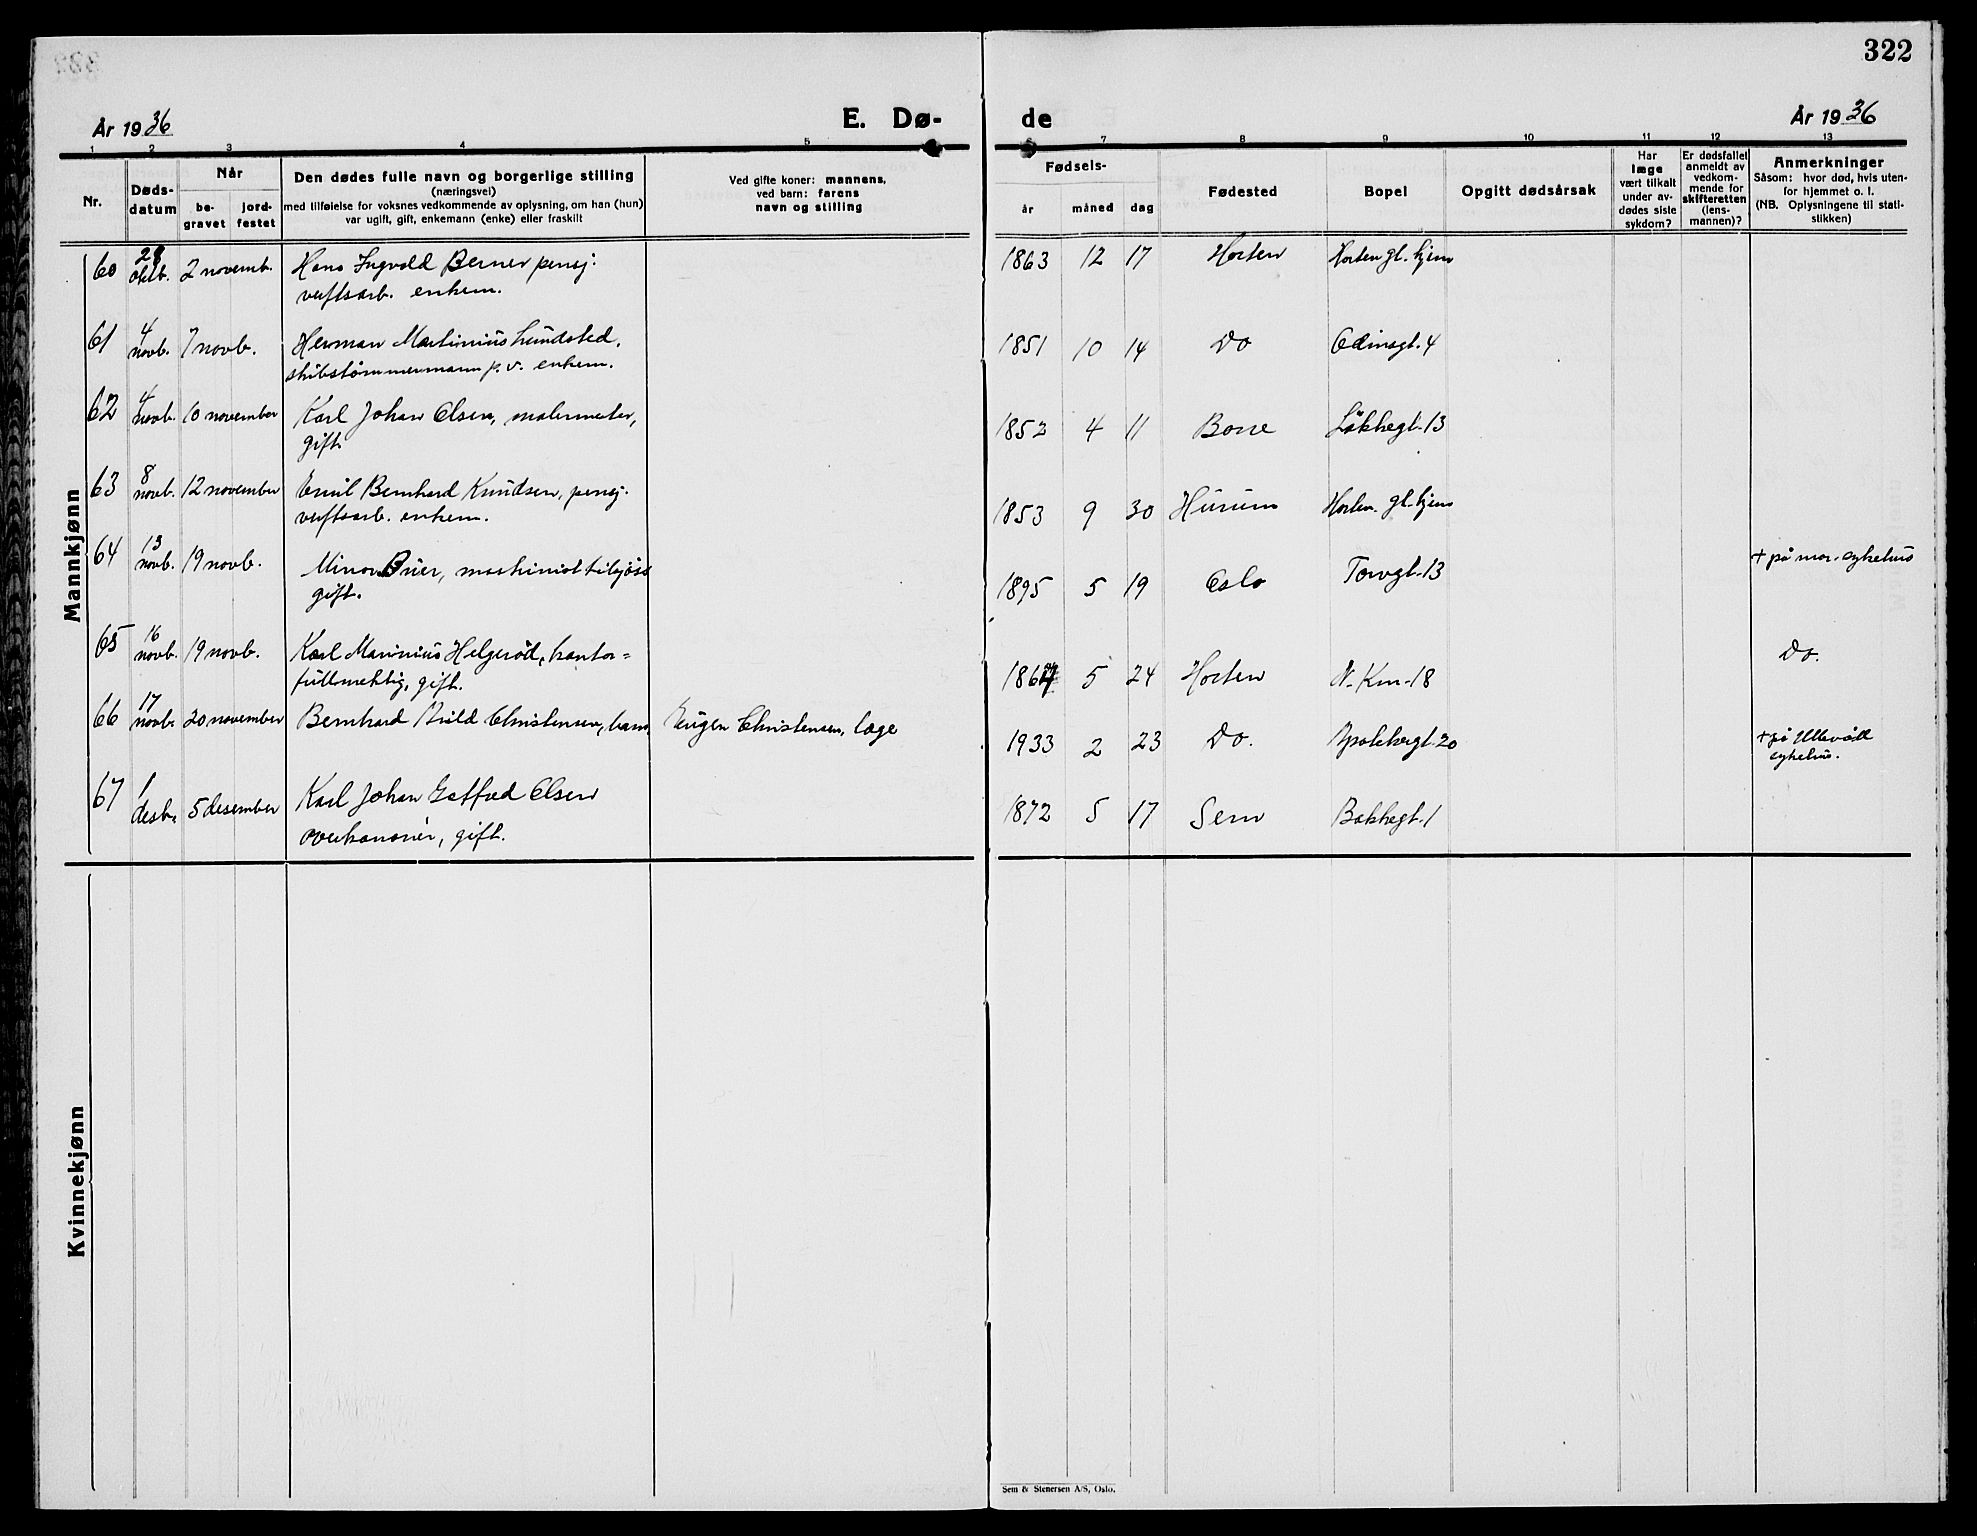 322
År 1936
E. Dø-
de
År 1936
1 2 3 4 5 6 7 8 9 10 11 12 13
Nr.
Døds-
datum
Når
be-
gravet
jord-
festet
Den dødes fulle navn og borgerlige stilling
(næringsvei)
med tilføielse for voksnes vedkommende av oplysning, om han (hun)
var ugift, gift, enkemann (enke) eller fraskilt
Ved gifte koner: mannens,
ved barn: farens
navn og stilling
Fødsels-
år måned dag
Fødested
Bopel
Opgitt dødsårsak
Har
læge
vært tilkalt
under av-
dødes siste
sykdom?
Er dødsfallet
anmeldt av
vedkom-
mende for
skifteretten
(lens-
mannen)?
Anmerkninger
Såsom: hvor død, hvis uten-
for hjemmet o. l.
(NB. Oplysningene til stati-
stikken)
Mannkjønn
60 28 oktb. 2 novemb. Hans Ingvald Berner pensj.
verftsarb. enkem.
1863 12 17 Horten Horten gl. hjem
61 4 novb. 7 novb. Herman Martinius Lundsted,
skibstømmermann p. v. enkem.
1851 10 14 Do Odinsgt. 4
62 4 novb. 10 november Karl Johan Olsen, malermester,
gift
1852 4 11 Borre Løkkegt. 13
63 8 novb. 12 november Emil Bernhard Knudsen, pensj.
verftsarb. enkem.
1853 9 30 Hurum Horten gl. hjem
64 13 novb. 19 novb. Bruer, maskinist tilsjøss
gift.
1895 5 19 Oslo Torvgt. 13 + på mar. sykehus
65 16 novb. 19 novb. Karl Marinius Helgerød, kontor=
fullmektig, gift.
1864 5 24 Horten N. Km. 18 Do.
66 17 novb. 20 november Bernhard Christensen, barn Eugen Christensen, læge
1933 2 23 Do. Apotekergt. 20 + på Ullevål
sykehus.
67 1 desb. 5 desember Karl Johan Gotfred Olsen
overkanonér, gift.
1872 5 17 Sem Bakkegt. 1
Kvinnekjønn
Sem & Stenersen A/S, Oslo.